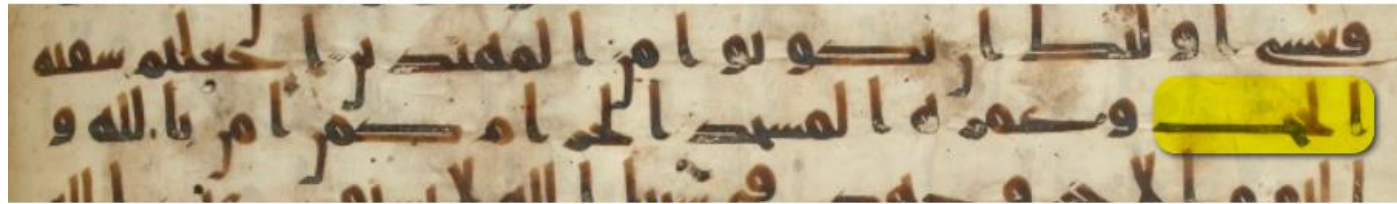 فعسى اولئك ان يكونوا من المهتدين اجعلتم سقيه
الحج وعمره المسجد الحرام كمن امن بالله و
اليوم الاخر وجهد في سبيل الله لا يستون عند الله